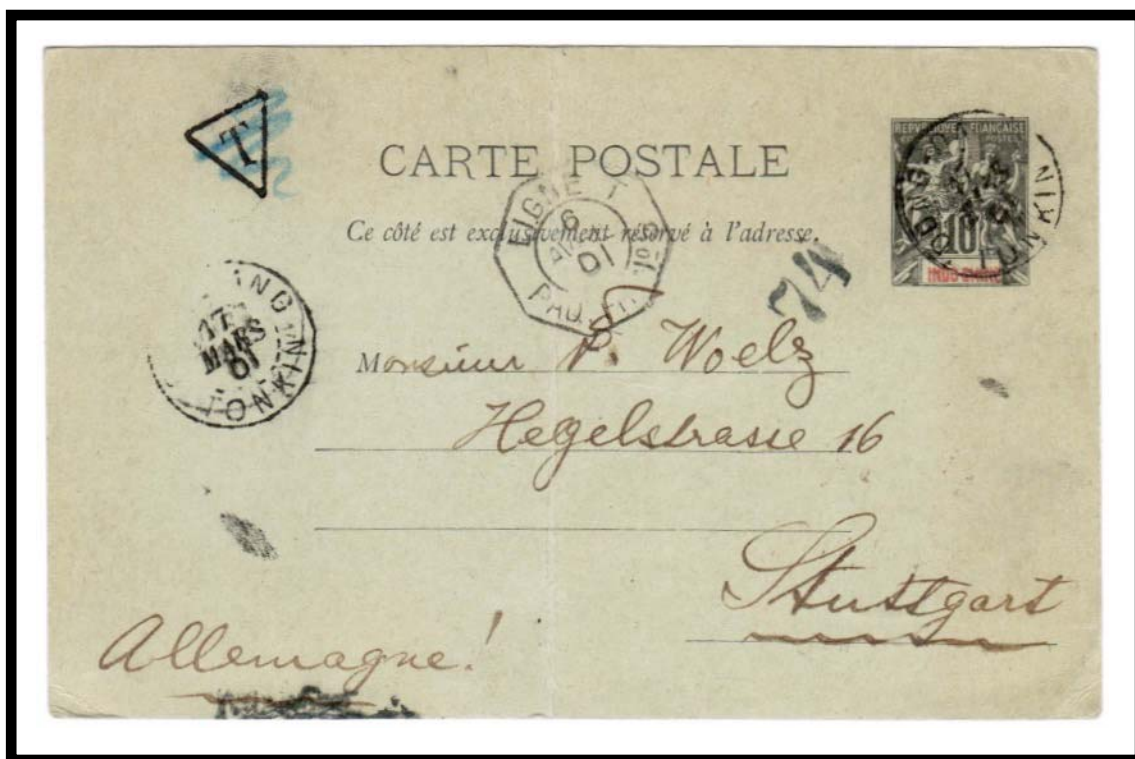 T
CARTE POSTALE
Ce côté est exclusivement réservé à l'adresse.
REPUBLIQUE FRANÇAISE
POSTES
10
INDO-CHINE
LIGNE T
6
01
PAQ. FR.
74
17
MARS
01
TONKIN
TONKIN
Monsieur P. Woelz
Hegelstrasse 16
Stuttgart
Allemagne!